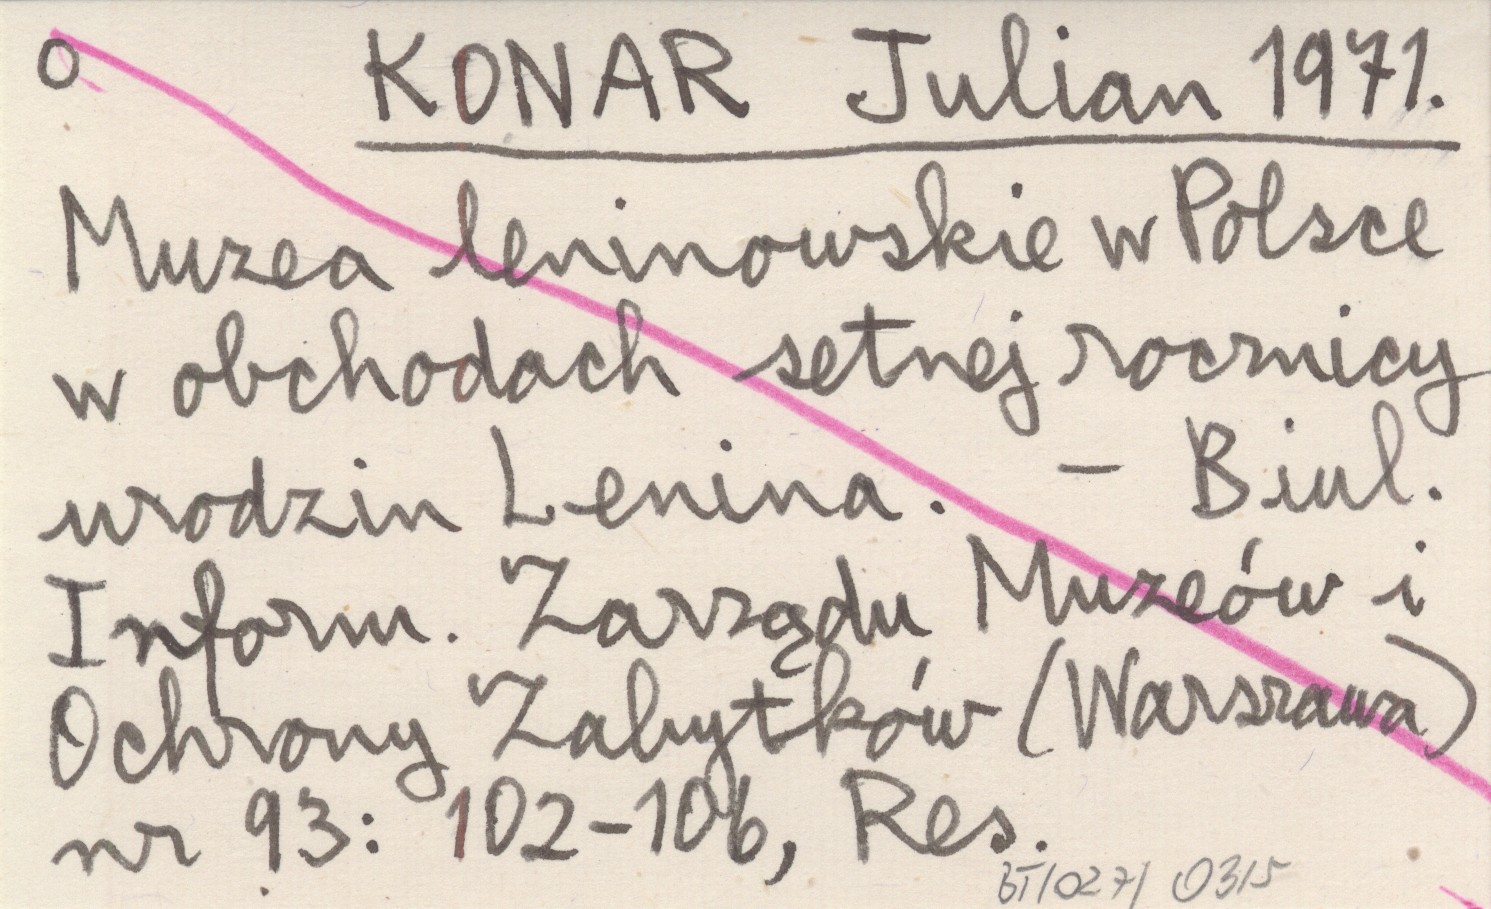 o KONAR Julian 1971.
Muzea leninowskie w Polsce
w obchodach setnej rocznicy
urodzin Lenina. – Biul.
Inform. Zarządu Muzeów i
Ochrony Zabytków (Warszawa)
nr 93: 102-106, Res.
BT/027/ 0315